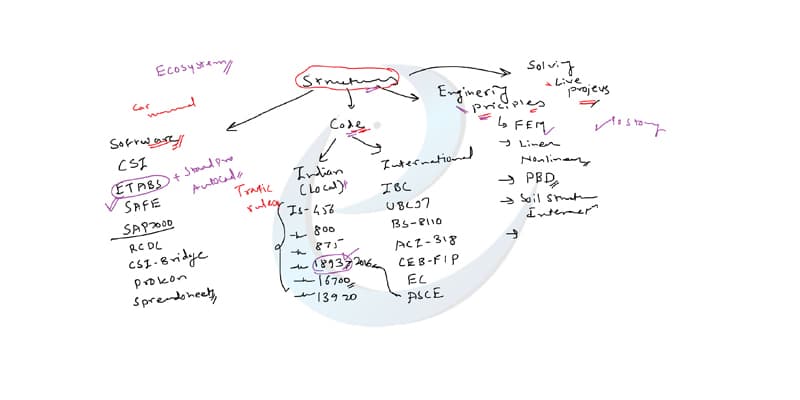 Ecosystem
Structures
Solving
Live
Projects
Car
manual
Software
CSI
ETABS
+ Staad Pro
Autocad
SAFE
SAP2000
RCDC
CSI-Bridge
Prokon
Spreadsheets
Code
Indian
(Local)
Trafic
rules
IS-456
800
875
1893 2016
16700
13920
International
IBC
UBC97
BS-8110
ACI-318
CEB-FIP
EC
ASCE
Enginering
Priciples
FEM
Linear
Nonlinear
PBD
Soil Structure
10 story